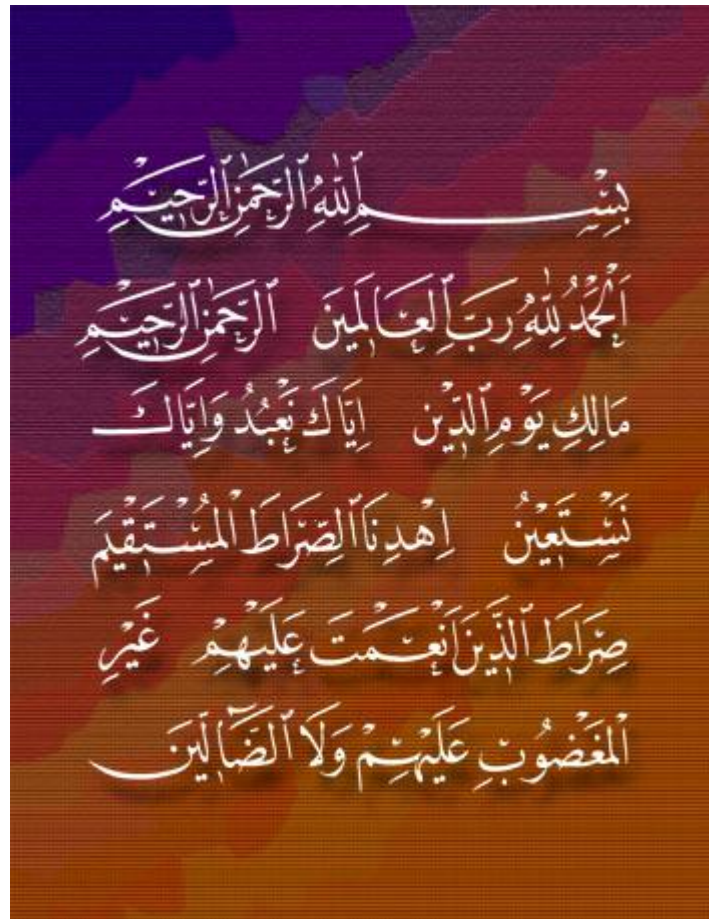 بِسْمِ ٱللّٰهِ ٱلرَّحْمٰنِ ٱلرَّحِيْمِ
اَلْحَمْدُ لِلّٰهِ رَبِّ ٱلْعَالَمِينَ ٱلرَّحْمٰنِ ٱلرَّحِيْمِ
مَالِكِ يَوْمِ ٱلدِّيْنِ اِيَّاكَ نَعْبُدُ وَاِيَّاكَ
نَسْتَعِيْنُ اِهْدِنَا ٱلصِّرَاطَ ٱلْمُسْتَقِيْمَ
صِرَاطَ ٱلَّذِينَ اَنْعَمْتَ عَلَيْهِمْ غَيْرِ
ٱلْمَغْضُوبِ عَلَيْهِمْ وَلَا ٱلضَّآلِّينَ